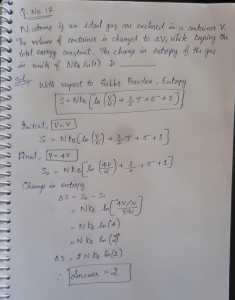 Q. No. 17
N atoms of an ideal gas are enclosed in a container V.
The volume of container is changed to 4V, while keeping the
total energy constant. The change in entropy of the gas
in units of NkB ln(2) is
Solⁿ With respect to Sackur Function, Entropy
S = NkB [ln(V/N) + 3/2 T + σ + 1]
Initial, V=V
S₁ = NkB [ln(V/N) + 3/2 T + σ + 1]
Final, V=4V
S₂ = NkB [ln(4V/N) + 3/2 T + σ + 1]
Change in entropy
ΔS = S₂ - S₁
= NkB ln[4V/N / V/N]
= NkB ln(4)
= NkB ln(2)²
ΔS = 2 NkB ln(2)
∴ Answer = 2